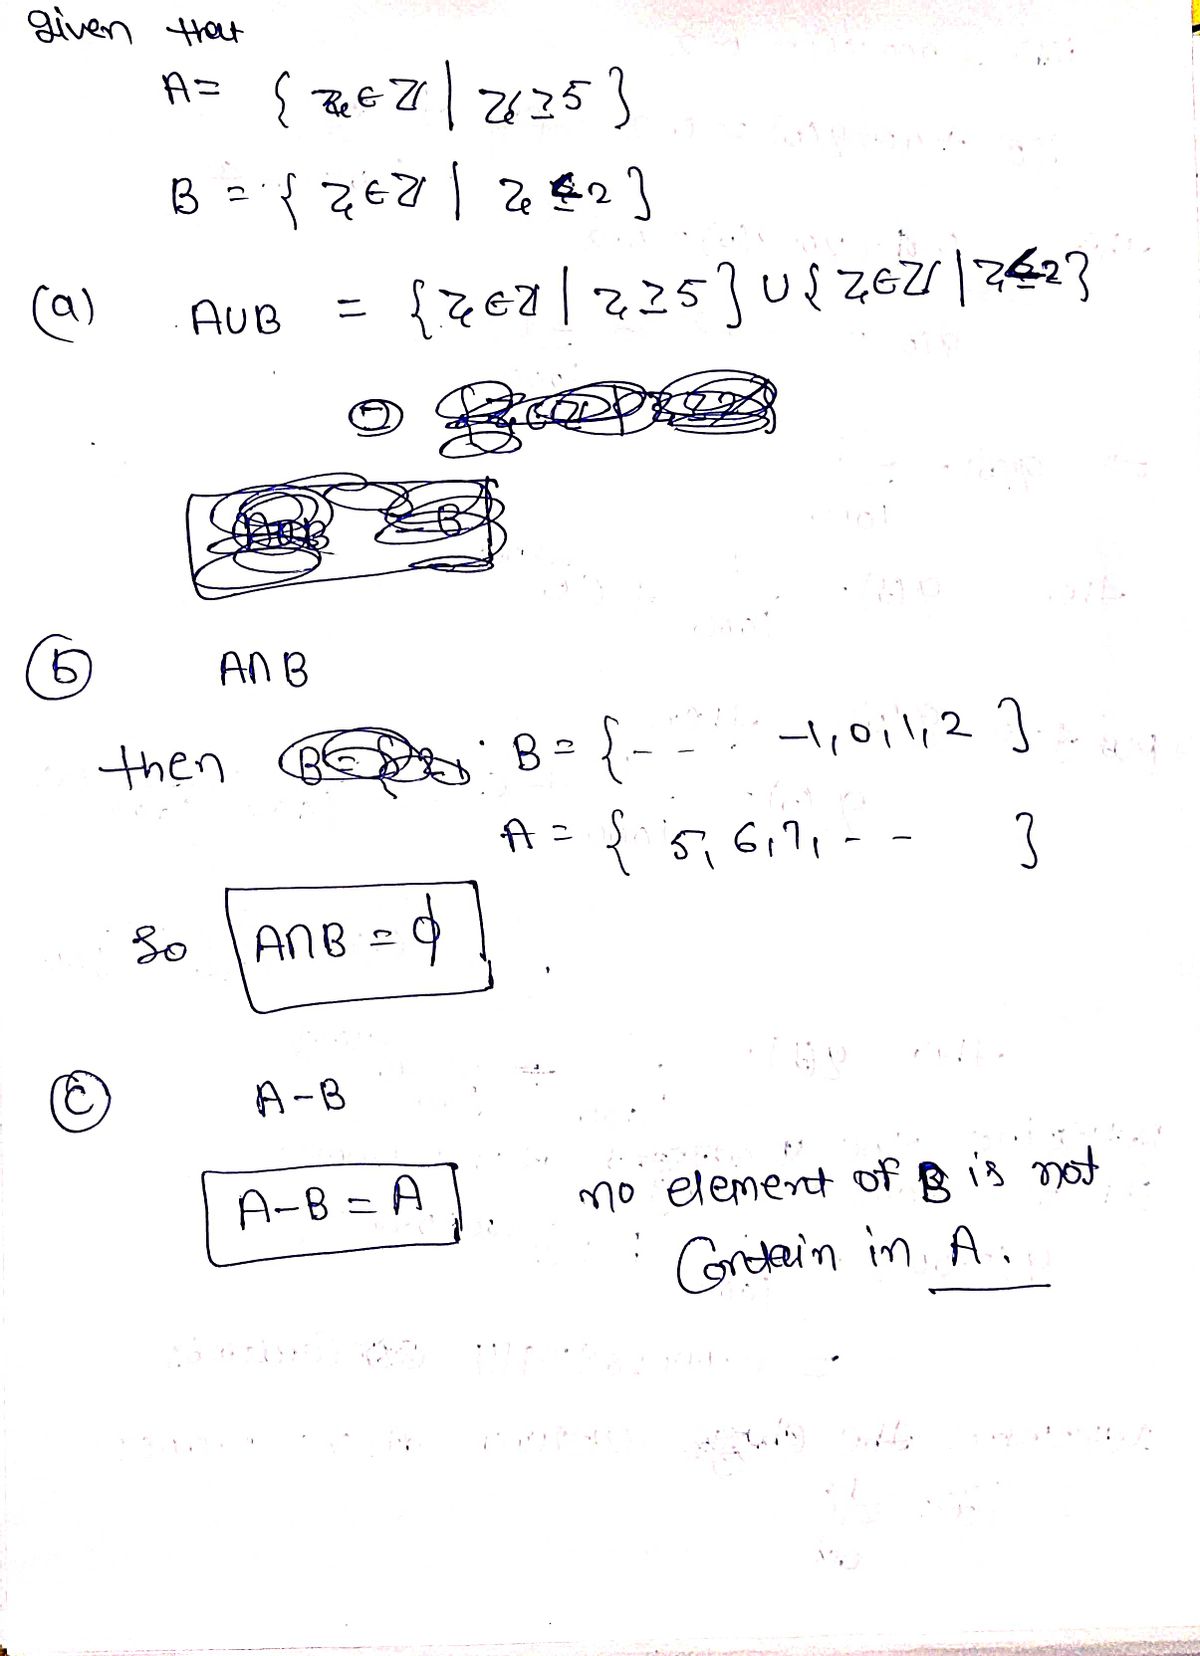 given that
A = { z ∈ ℤ | z ≥ 5 }
B = { z ∈ ℤ | z ≤ 2 }
(a) A∪B = { z ∈ ℤ | z ≥ 5 } ∪ { z ∈ ℤ | z ≤ 2 }
(b) A∩B
then B = { - - . -1, 0, 1, 2 }
A = { 5, 6, 7, - - }
So A∩B = ϕ
(c) A-B
A-B = A no element of B is not
Contain in A.